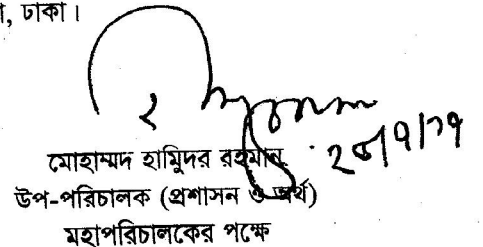 , ঢাকা।
মোহাম্মদ হামিুদর রহমান
উপ-পরিচালক (প্রশাসন ও অর্থ)
মহাপরিচালকের পক্ষে